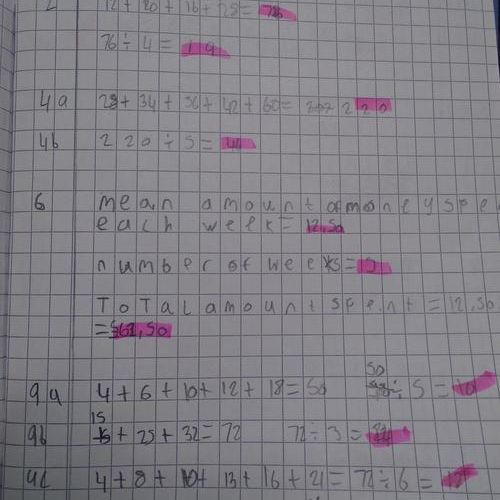 12 + 20 + 16 + 28 = 76
76 ÷ 4 = 19
4a 28 + 34 + 56 + 42 + 60 = 220
4b 220 ÷ 5 = 44
6 mean amount of money spe
each week = 12,50
number of weeks =
Total amount spent = 12,50
= 562,50
9a 4 + 6 + 10 + 12 + 18 = 50 50 ÷ 5 = 10
9b 15 + 25 + 32 = 72 72 ÷ 3 = 24
4 + 8 + 10 + 13 + 16 + 21 = 72 ÷ 6 =